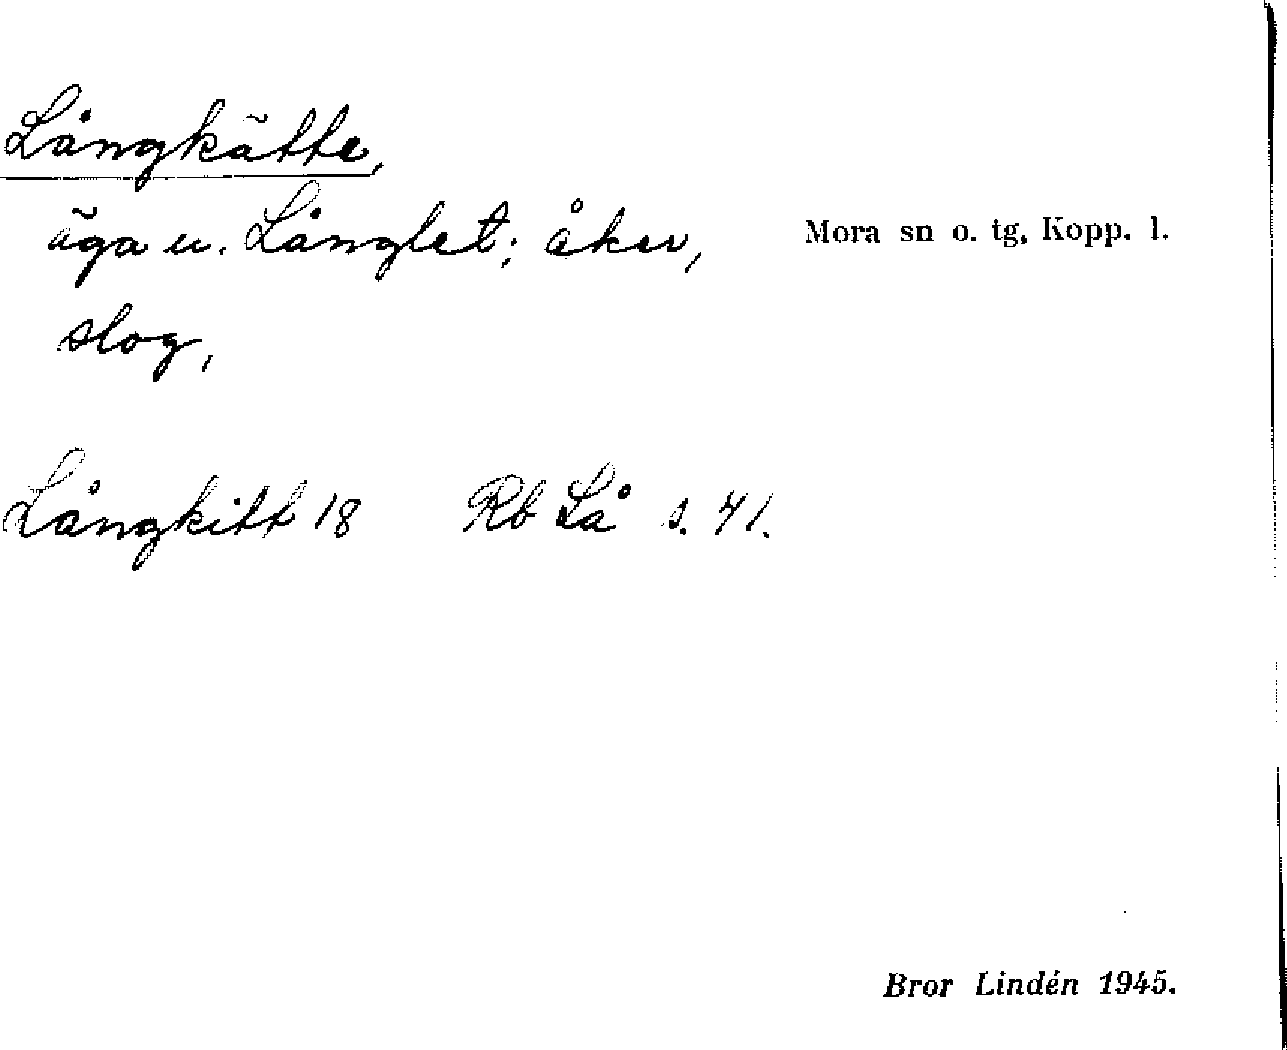 Långkätte,
äga u. Långlet; åker,
Mora sn o. tg, Kopp. l.
slog,
Långkitt 18 Rb Lå s. 41.
Bror Lindén 1945.